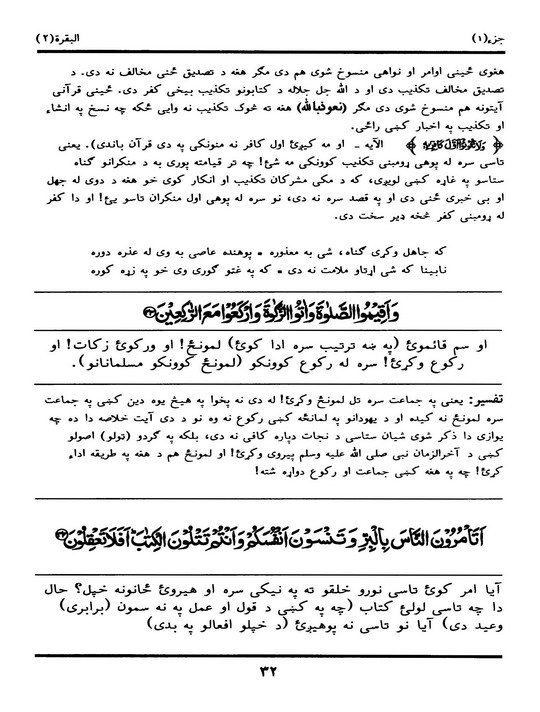 جزء(۱)
البقرة(۲)
هغوی ځینې اوامر او نواهی منسوخ شوی هم دی مگر هغه د تصدیق ځنی مخالف نه دی. د
تصدیق مخالف تکذیب دی او د الله جل جلاله د کتابونو تکذیب بیخی کفر دی. ځینی قرآنی
آیتونه هم منسوخ شوی دی مگر (نعوذبالله) هغه ته څوک تکذیب نه وایی ځکه چه نسخ په انشاء
او تکذیب په اخبار کښی راځی.
﴿ وَلَا تَكُونُوا أَوَّلَ كَافِرٍ بِهِ ﴾ الآیه - او مه کیږئ اول کافر نه منونکی په دی قرآن باندی). یعنی
تاسی سره له پوهی ړومبنی تکذیب کوونکی مه شئ! چه تر قیامته پوری به د منکرانو گناه
ستاسو په غاړه کښی لویږی، که د مکی مشرکان تکذیب او انکار کوی خو هغه د دوی له جهل
او بی خبری ځنی دی او په قصد سره نه دی، نو سره له پوهی اول منکران تاسو یئ! او دا کفر
له ړومبنی کفر څخه ډیر سخت دی.
که جاهل وکړی گناه، شی به معذوره - پوهنده عاصی به وی له عذره دوره
نابینا که شی اړتاو ملامت نه دی - که په غټو گوری وی خو په زړه کوره
وَاَقِيْمُوا الصَّلٰوةَ وَاٰتُوا الزَّكٰوةَ وَارْكَعُوْا مَعَ الرّٰكِعِيْنَ
او سم قائموئ (په ښه ترتیب سره ادا کوئ) لمونځ! او ورکوئ زکات! او
رکوع وکړئ! سره له رکوع کوونکو (لمونځ کوونکو مسلمانانو).
تفسیر: یعنی په جماعت سره تل لمونځ وکړئ! له دی نه پخوا په هیڅ یوه دین کښی په جماعت
سره لمونځ نه کیده او د یهودانو په لمانځه کښی رکوع نه وه نو د دی آیت خلاصه دا ده چه
یوازی دا ذکر شوی شیان ستاسی د نجات دپاره کافی نه دی، بلکه په گردو (ټولو) اصولو
کښی د آخرالزمان نبی صلی الله علیه وسلم پیروی وکړئ! او لمونځ هم د هغه په طریقه اداء
کړئ! چه په هغه کښی جماعت او رکوع دواړه شته!
اَتَاْمُرُوْنَ النَّاسَ بِالْبِرِّ وَتَنْسَوْنَ اَنْفُسَكُمْ وَاَنْتُمْ تَتْلُوْنَ الْكِتٰبَ اَفَلَا تَعْقِلُوْنَ
آیا امر کوئ تاسی نورو خلقو ته په نیکی سره او هیروئ ځانونه خپل؟ حال
دا چه تاسی لولئ کتاب (چه په کښی د قول او عمل په نه سمون (برابری)
وعید دی) آیا نو تاسی نه پوهیږئ (د خپلو افعالو په بدی)
۳۲